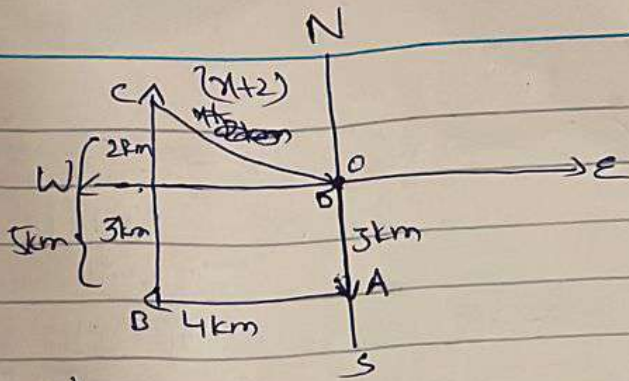 N
C (x+2)
2km
W O E
5km 3km 3km
A
B 4km
S